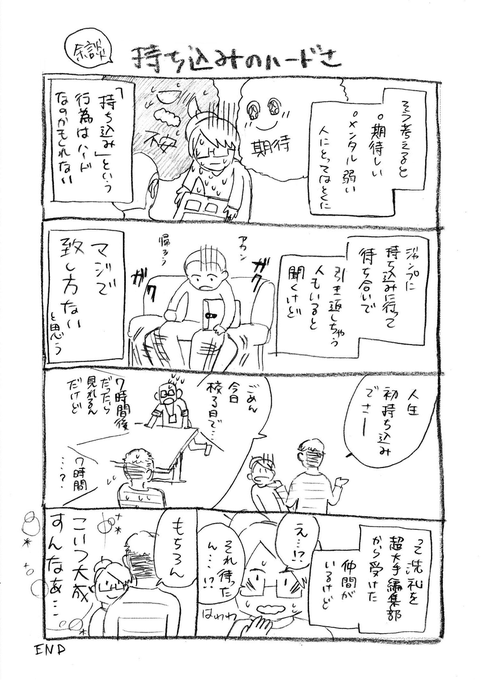 余談
持ち込みのハードさ
そう考えると
○期待しい
○メンタル弱い
人にとってはとくに
期待
不安
「持ち込み」という
行為はハード
なのかもしれない
ジャンプに
持ち込みに行って
待ち合いで
引き返しちゃう
人もいると
聞くけど
アカン
帰ろう
ガク
ガク
マジで
致し方ない
と思う
人生
初持ち込み
でさー
ごめん
今日
校了日で…
7時間後
だったら
見れるん
だけど
7時間
…?
って洗礼を
超大手編集部
から受けた
仲間が
いるけど
え…!?
それ待った
ん…!?
はわわ
もちろん
こいつ大成
すんなぁ…
END